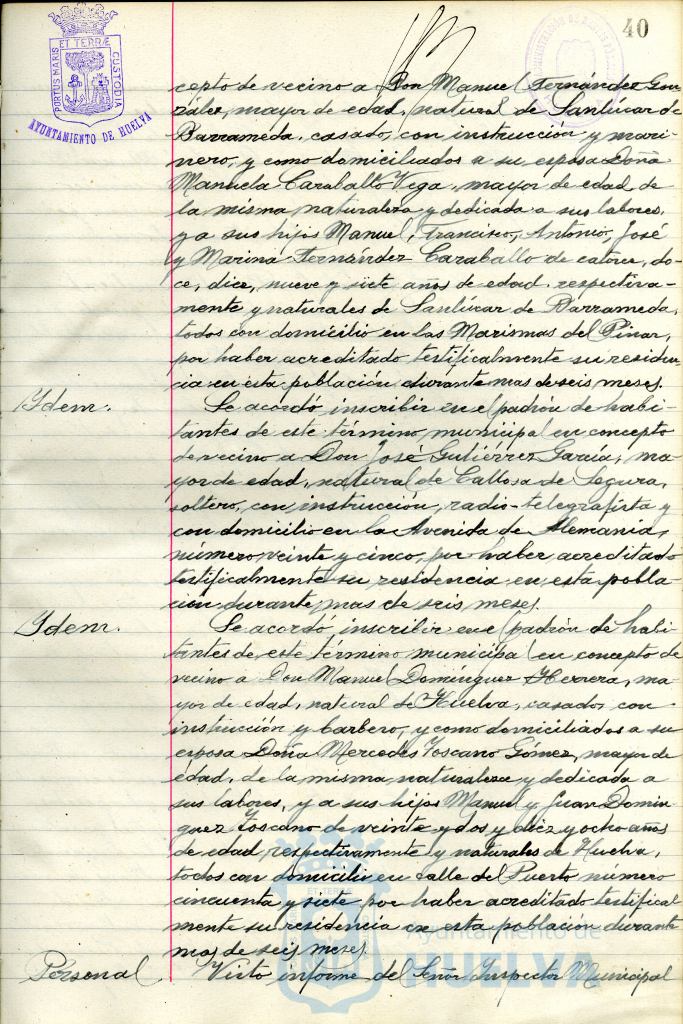 40
PORTUS MARIS ET TERRÆ CUSTODIA
AYUNTAMIENTO DE HUELVA
cepto de vecino a Don Manuel Fernández Gon
zález, mayor de edad, natural de Sanlúcar de
Barrameda, casado, con instrucción y mari
nero, y como domiciliados a su esposa Doña
Manuela Caraballo Vega, mayor de edad, de
la misma naturaleza y dedicada a sus labores,
y a sus hijos Manuel, Francisco, Antonio, José
y Marina Fernández Caraballo de catorce, do-
ce, diez, nueve y siete años de edad respectiva-
mente y naturales de Sanlúcar de Barrameda,
todos con domicilio en las Marismas del Pinar,
por haber acreditado testificalmente su residen-
cia en esta población durante mas de seis meses.
Ydem. Se acordó inscribir en el padrón de habi-
tantes de este término municipal en concepto
de vecino a Don José Gutiérrez García, ma
yor de edad, natural de Callosa de Segura,
soltero, con instrucción, radio-telegrafista y
con domicilio en la Avenida de Alemania,
número veinte y cinco, por haber acreditado
testificalmente su residencia en esta pobla-
ción durante mas de seis meses.
Ydem. Se acordó inscribir en el padrón de habi
tantes de este término municipal en concepto de
vecino a Don Manuel Domínguez Herrera, ma
yor de edad, natural de Huelva, casado, con
instrucción y barbero, y como domiciliados a su
esposa Doña Mercedes Toscano Gómez, mayor de
edad, de la misma naturaleza y dedicada a
sus labores, y a sus hijos Manuel y Juan Domin
guez Toscano de veinte y dos y diez y ocho años
de edad respectivamente y naturales de Huelva,
todos con domicilio en calle del Puerto numero
cincuenta y siete por haber acreditado testifical
mente su residencia en esta población durante
mas de seis meses.
Personal Visto informe del Señor Inspector Municipal
Ayuntamiento de
HUELVA